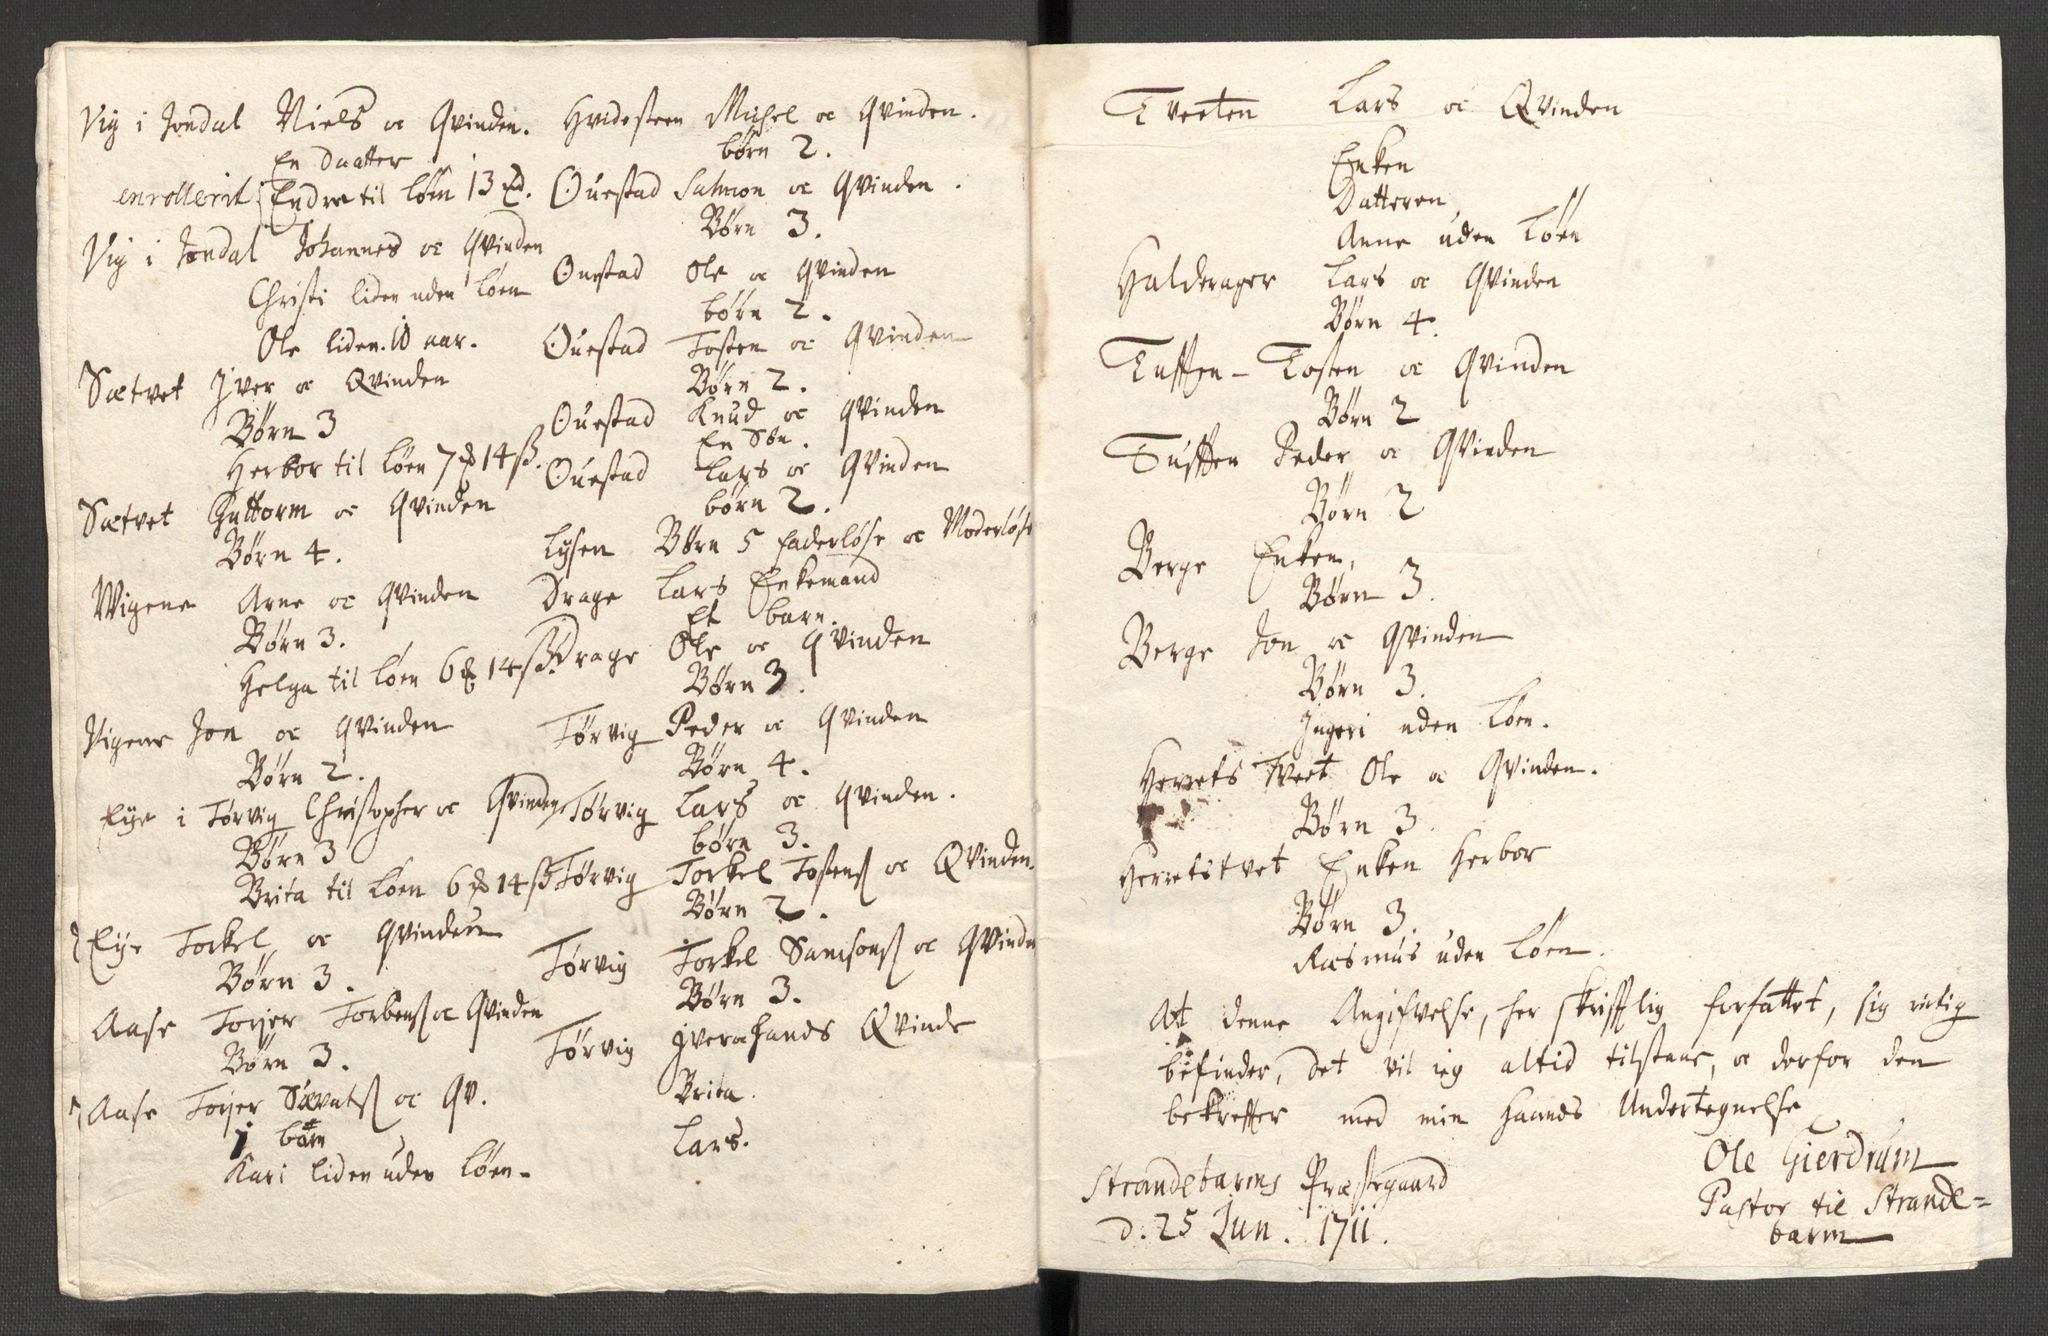 Vig i Jondal Niels oc Qvinden.
En Daatter
enrollerit Endre til løen 13
Vig i Jondal Johannes oc Qvinden
Christi liden uden løen
Ole liden. 10 aar.
Sætvet Jver oc Qvinden
Børn 3
Herbor til løen 7 14 ß.
Sætvet Guttorm oc Qvinden
Børn 4.
Wigene Arne oc Qvinden
Børn 3.
Helga til løen 6 14 ß.
Vigene Jon oc Qvinden
Børn 2.
Eije i Tørvig Christopher oc Qvinden
Børn 3
Brita til løen 6 14 ß
Eije Torkel oc Qvinden
Børn 3.
Aase Torjer Torbens oc Qvinden
Børn 3.
Aase Torjer oc Qv.
1 barn
Kari liden uden løen.
Hvidesteen Michel oc Qvinden.
børn 2.
Ouestad Salmon oc Qvinden.
Børn 3.
Ouestad Ole oc Qvinden
børn 2.
Ouestad Tosten oc Qvinden
Børn 2.
Ouestad Knud oc Qvinden
En Søn.
Ouestad Lars oc Qvinden
børn 2.
Lysen Børn 5 Faderløse oc Moderløse
Drage Lars Enkemand
Et barn.
Drage Ole oc Qvinden
Børn 3.
Tørvig Peder oc Qvinden
Børn 4.
Tørvig Lars oc Qvinden.
børn 3.
Tørvig Torkel Tostens oc Qvinden.
Børn 2.
Tørvig Torkel Samsons oc Qvinden
Børn 3.
Tørvig Jver oc hands Qvinde
Brita.
Lars.
Tveten Lars oc Qvinden
Enken
Datteren
Anne uden Løen
Halderager Lars oc Qvinden
Børn 4.
Tuffen - Tosten oc Qvinden
Børn 2
Tuffen Peder oc Qvinden
Børn 2
Berge Enken,
Børn 3.
Berge Jon oc Qvinden
Børn 3.
Jngeri uden Løen.
Herrets Tveet Ole oc Qvinden.
Børn 3.
Herretstvet Enken Herbor
Børn 3.
Rasmus uden Løen.
At denne Angifvelse, her skrifftlig forfattet, sig rictig
befinder, det vil ieg altid tilstaae, oc derfor den
bekreffter med min haands Undertegnelse
Strandebarms Præstegaard
d. 25 Jun. 1711.
Ole Gierdrum
Pastor til Strande=
barm